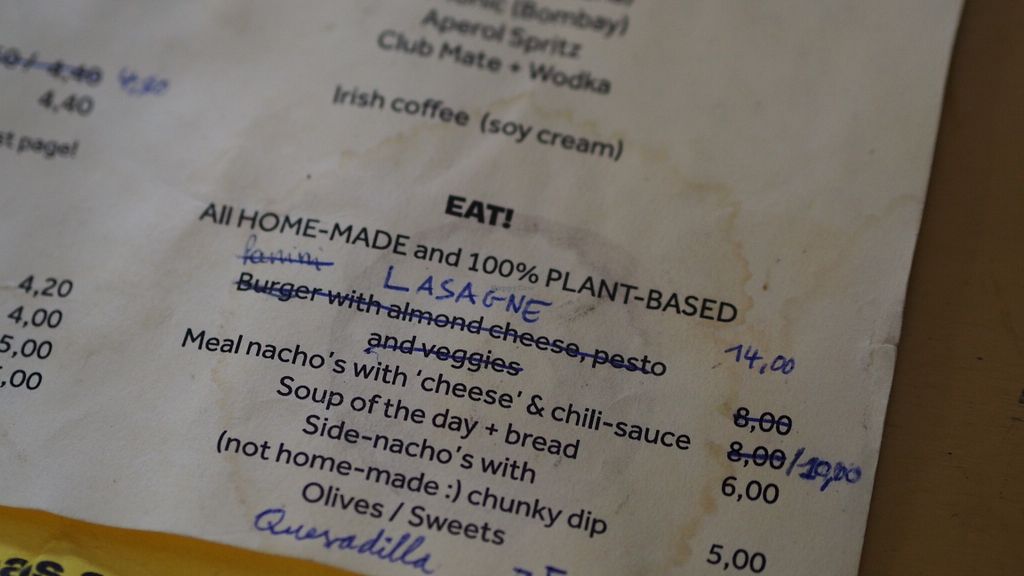 (Bombay)
Aperol Spritz
Club Mate + Wodka
Irish coffee (soy cream)
4,40 4,80
4,40
page!
EAT!
All HOME-MADE and 100% PLANT-BASED
Panini
LASAGNE
Burger with almond cheese, pesto
and veggies
14,00
Meal nacho's with 'cheese' & chili-sauce
8,00
Soup of the day + bread
8,00/10,00
Side-nacho's with
6,00
(not home-made :) chunky dip
Olives / Sweets
5,00
Quesadilla
4,20
4,00
5,00
,00